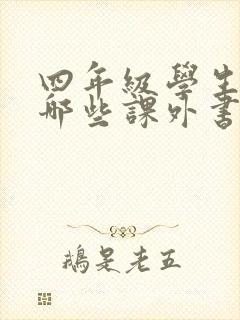 四年級學生
哪些課外書
鵝是老五